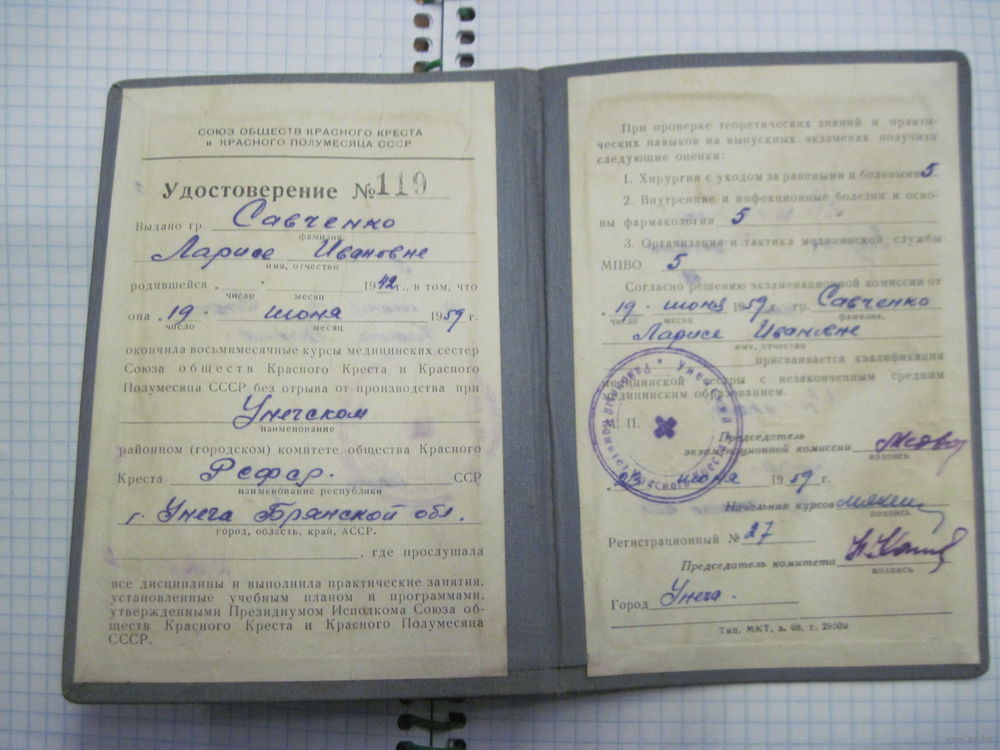 СОЮЗ ОБЩЕСТВ КРАСНОГО КРЕСТА
и КРАСНОГО ПОЛУМЕСЯЦА СССР
Удостоверение № 119
Выдано гр. Савченко
фамилия,
Ларисе Ивановне
имя, отчество
родившейся . . 1942 г., в том, что
число месяц
она . 19 . июня 1959 г.
число месяц
окончила восьмимесячные курсы медицинских сестер
Союза обществ Красного Креста и Красного
Полумесяца СССР без отрыва от производства при
Унечском
наименование
районном (городском) комитете общества Красного
Креста Р.С.Ф.С.Р. ССР
наименование республики
г. Унеча Брянской обл.
город, область, край, АССР.
, где прослушала
все дисциплины и выполнила практические занятия,
установленные учебным планом и программами,
утвержденными Президиумом Исполкома Союза об-
ществ Красного Креста и Красного Полумесяца
СССР.
При проверке теоретических знаний и практи-
ческих навыков на выпускных экзаменах получила
следующие оценки:
1. Хирургия с уходом за ранеными и больными 5
2. Внутренние и инфекционные болезни и осно-
вы фармакологии 5
3. Организация и тактика медицинской службы
МПВО 5
Согласно решению экзаменационной комиссии от
. 19 . июня 1959 г. гр. Савченко
число месяц фамилия,
Ларисе Ивановне
имя, отчество
присваивается квалификация
медицинской сестры с незаконченным средним
медицинским образованием.
М. П.
Председатель
экзаменационной комиссии
подпись
июня 1959 г.
Начальник курсов
подпись
Регистрационный № 27
Председатель комитета
подпись
Город Унеча.
Тип. МКТ, з. 68, т. 29500